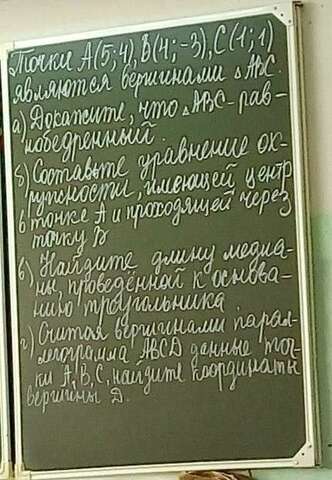 Точки A(5;4), B(4;-3), C(1;1)
являются вершинами △ABC.
а) Докажите, что △ABC - рав-
нобедренный.
б) Составьте уравнение ок-
ружности, имеющей центр
в точке A и проходящей через
точку B
в) Найдите длину медиа-
ны, проведённой к основа-
нию треугольника.
г) Считая вершинами парал-
лелограмма ABCD данные точ-
ки A, B, C, найдите координаты
вершины D.